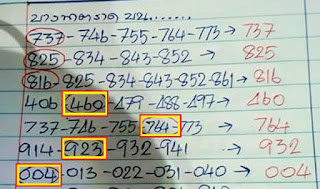 737-746-755-764-773 → 737
825-834-843-852 → 825
816-825-834-843-852-861 → 816
406-460-479-488-497 → 460
737-746-755-764-773 → 764
914-923-932-941 → 932
004-013-022-031-040 → 004